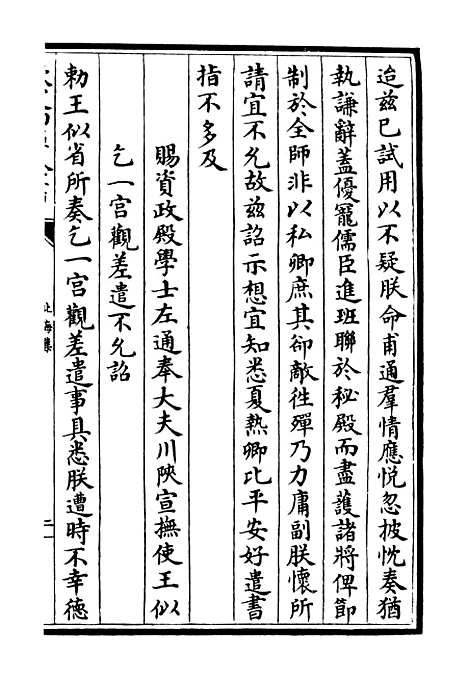 迨兹已試用以不疑朕命甫通羣情應悅忽披忱奏猶
執謙辭蓋優寵儒臣進班聯於秘殿而盡護諸將俾節
制於全師非以私卿庶其卻敵徃殫乃力庸副朕懷所
請宜不允故兹詔示想宜知悉夏熱卿比平安好遣書
指不多及
賜資政殿學士左通奉大夫川陝宣撫使王似
乞一宫觀差遣不允詔
勅王似省所奏乞一宫觀差遣事具悉朕遭時不幸德
北海集